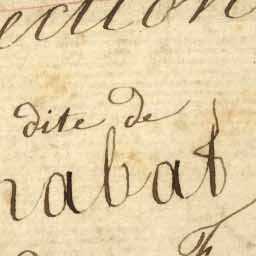 ection
dite de
rabat